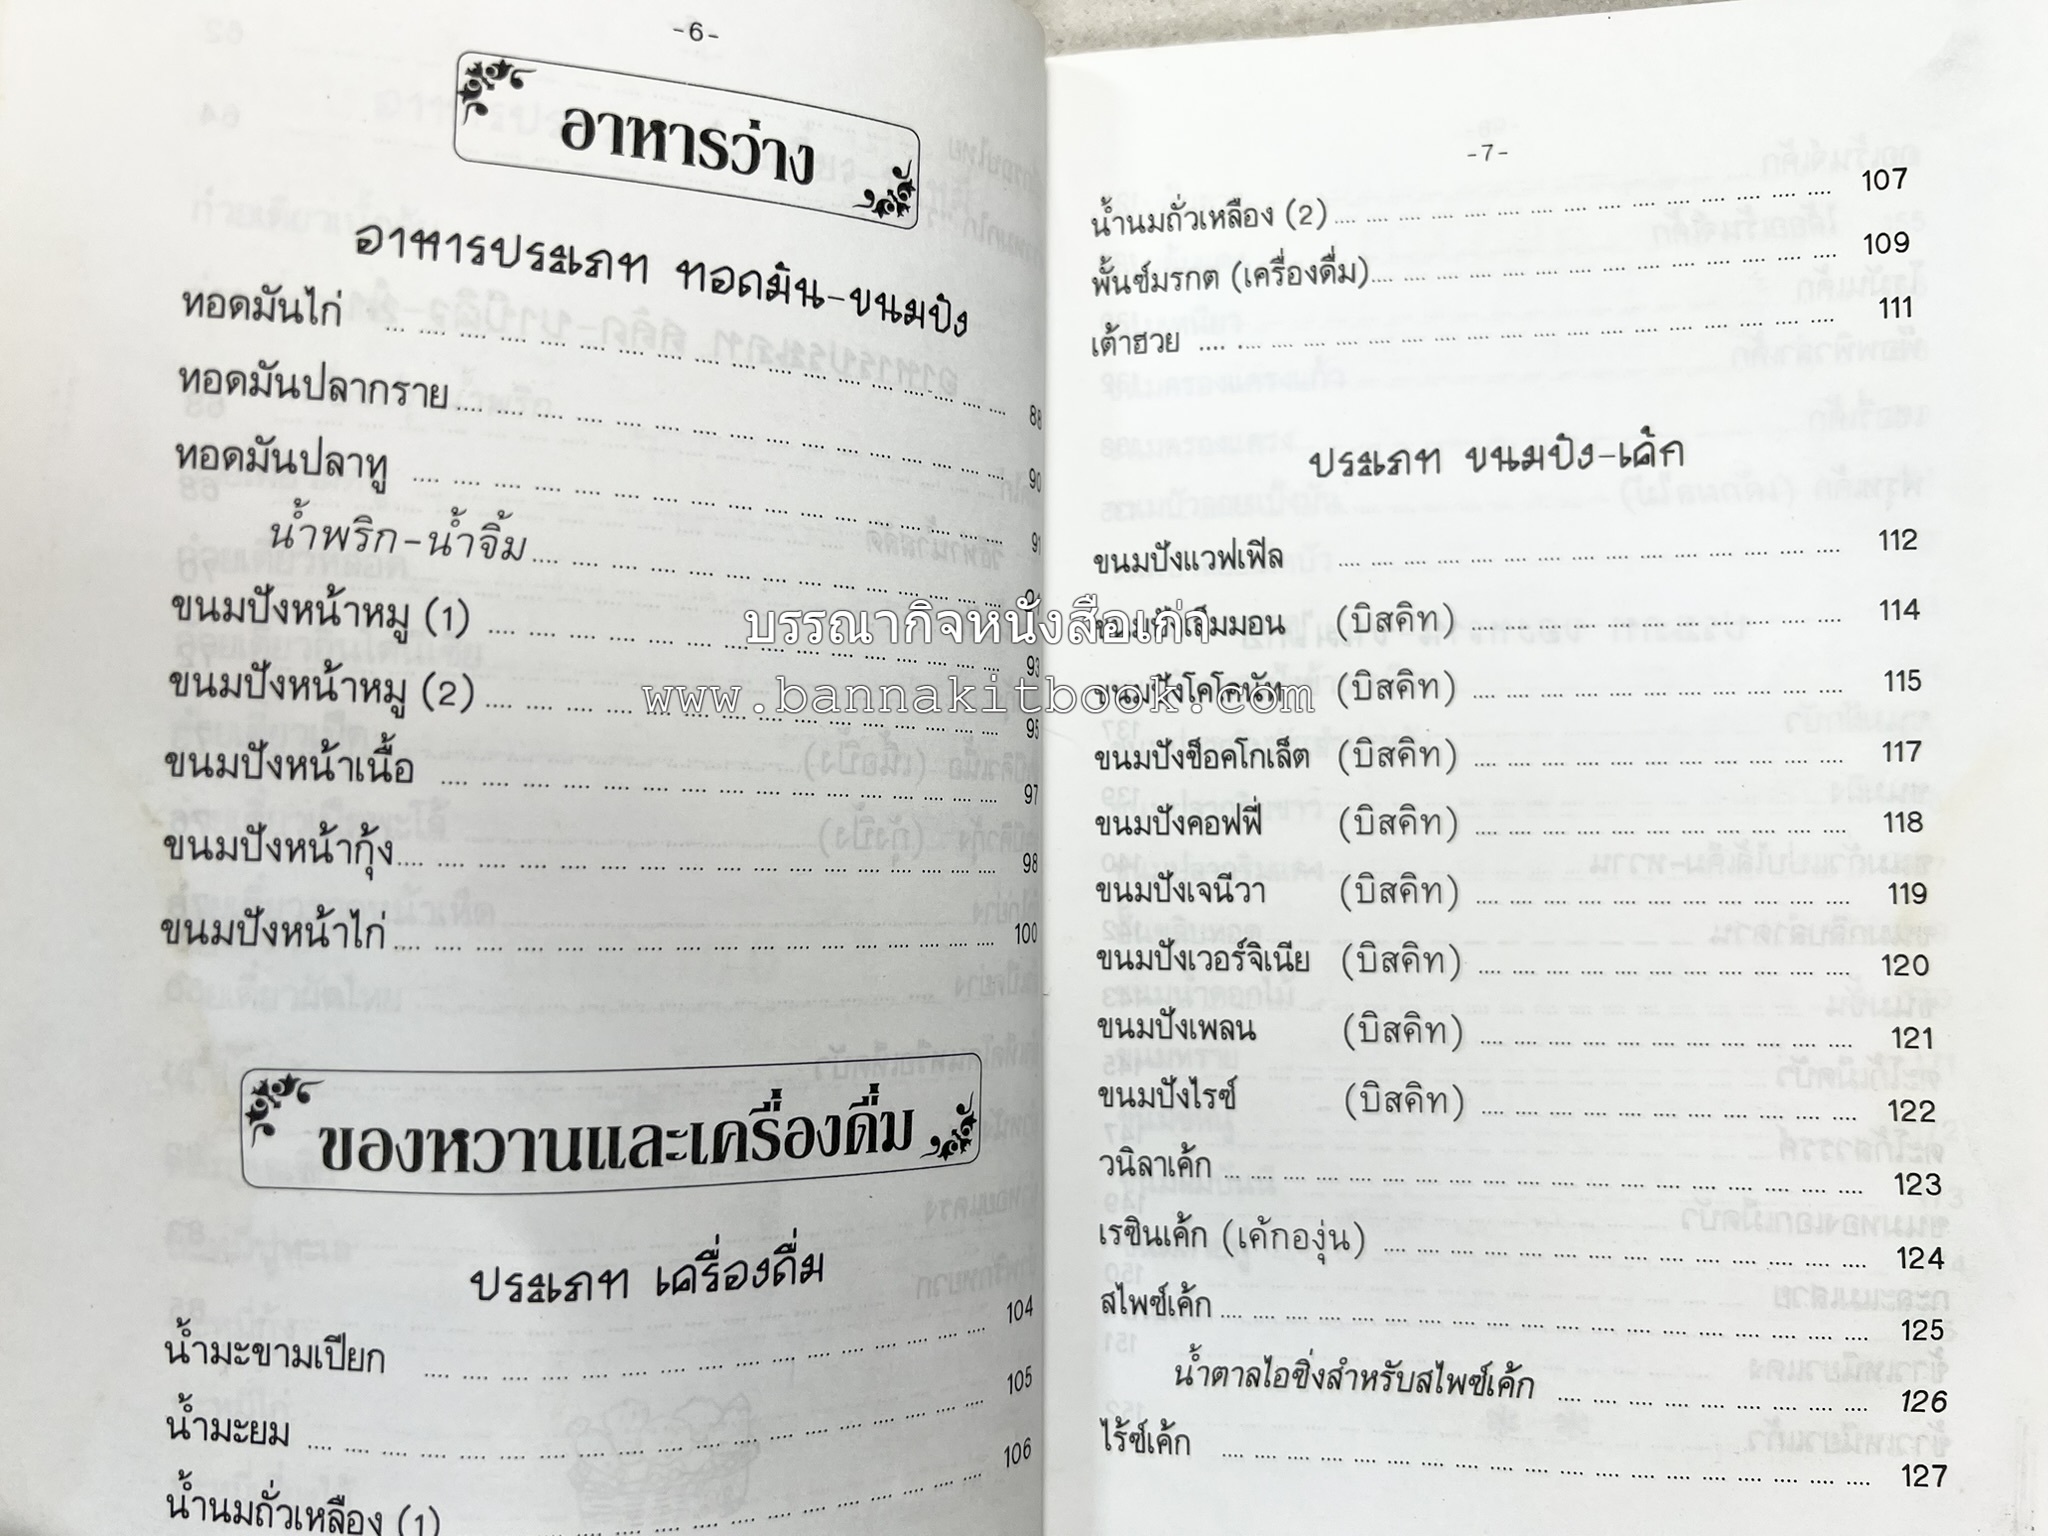 -6-
อาหารว่าง
อาหารประเภท ทอดมัน-ขนมปัง
ทอดมันไก่ 88
ทอดมันปลากราย 90
ทอดมันปลาทู 91
น้ำพริก-น้ำจิ้ม
ขนมปังหน้าหมู (1) 93
ขนมปังหน้าหมู (2) 95
ขนมปังหน้าเนื้อ 97
ขนมปังหน้ากุ้ง 98
ขนมปังหน้าไก่ 100
ของหวานและเครื่องดื่ม
ประเภท เครื่องดื่ม
น้ำมะขามเปียก 104
น้ำมะยม 105
น้ำนมถั่วเหลือง (1) 106
-7-
น้ำนมถั่วเหลือง (2) 107
พั้นซ์มรกต (เครื่องดื่ม) 109
เต้าฮวย 111
ประเภท ขนมปัง-เค้ก
ขนมปังแวฟเฟิล 112
ขนมปังเล็มมอน (บิสคิท) 114
ขนมปังโคโคนัท (บิสคิท) 115
ขนมปังช็อคโกเล็ต (บิสคิท) 117
ขนมปังคอฟฟี่ (บิสคิท) 118
ขนมปังเจนีวา (บิสคิท) 119
ขนมปังเวอร์จิเนีย (บิสคิท) 120
ขนมปังเพลน (บิสคิท) 121
ขนมปังไรซ์ (บิสคิท) 122
วนิลาเค้ก 123
เรซินเค้ก (เค้กองุ่น) 124
สไพซ์เค้ก 125
น้ำตาลไอซิ่งสำหรับสไพซ์เค้ก 126
ไร้ซ์เค้ก 127
บรรณากิจหนังสือเก่า
www.bannakitbook.com